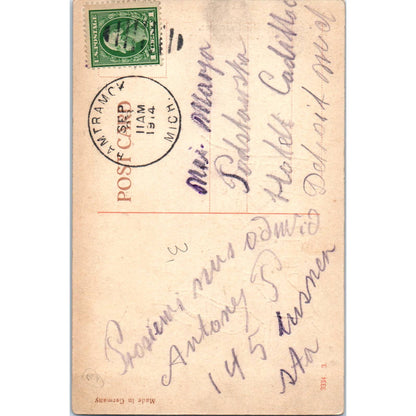 U.S. POSTAGE
1 CENT 1
HAMTRAMCK
SEP
11 AM
1914
MICH
POST CARD
Mrs. Marya
Podolawska
Hotel Cadillac
Detroit Mich
Prosiemi nas odwić
Antoney P
145
str
Made in Germany
3334 3